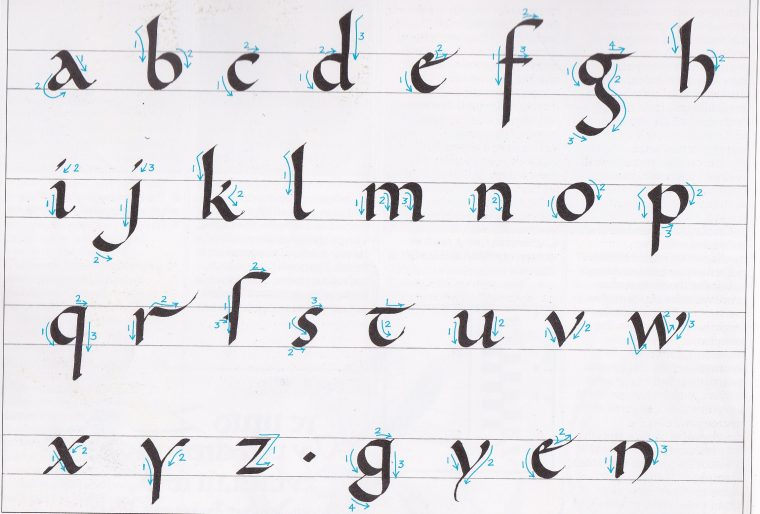 a b c d e f g h
i j k l m n o p
q r ſ s t u v w
x y z · g y e n